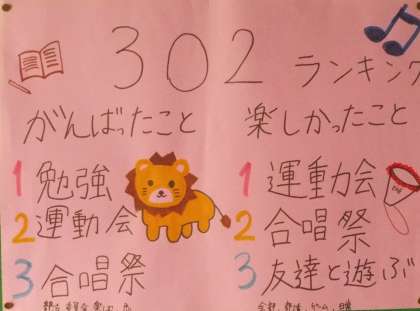 302 ランキング
がんばったこと
1 勉強
2 運動会
3 合唱祭
楽しかったこと
1 運動会
2 合唱祭
3 友達と遊ぶ